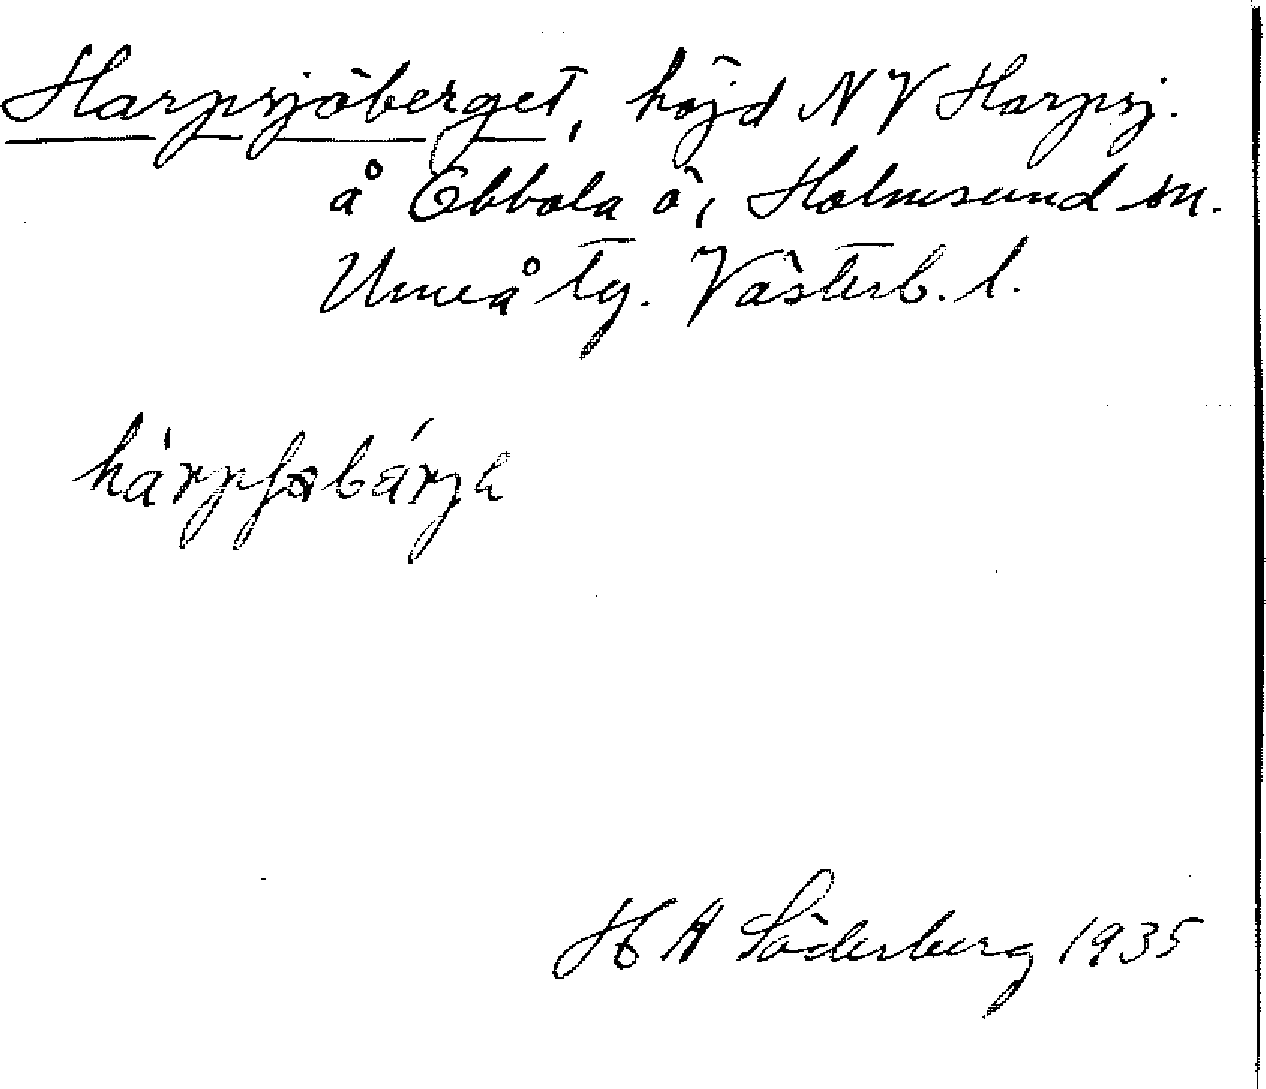 Harpsjöberget, höjd NV Harpsj.
å Ebbola ö, Holmsund sn.
Umeå tg. Västerb. l.
H A Söderberg 1935